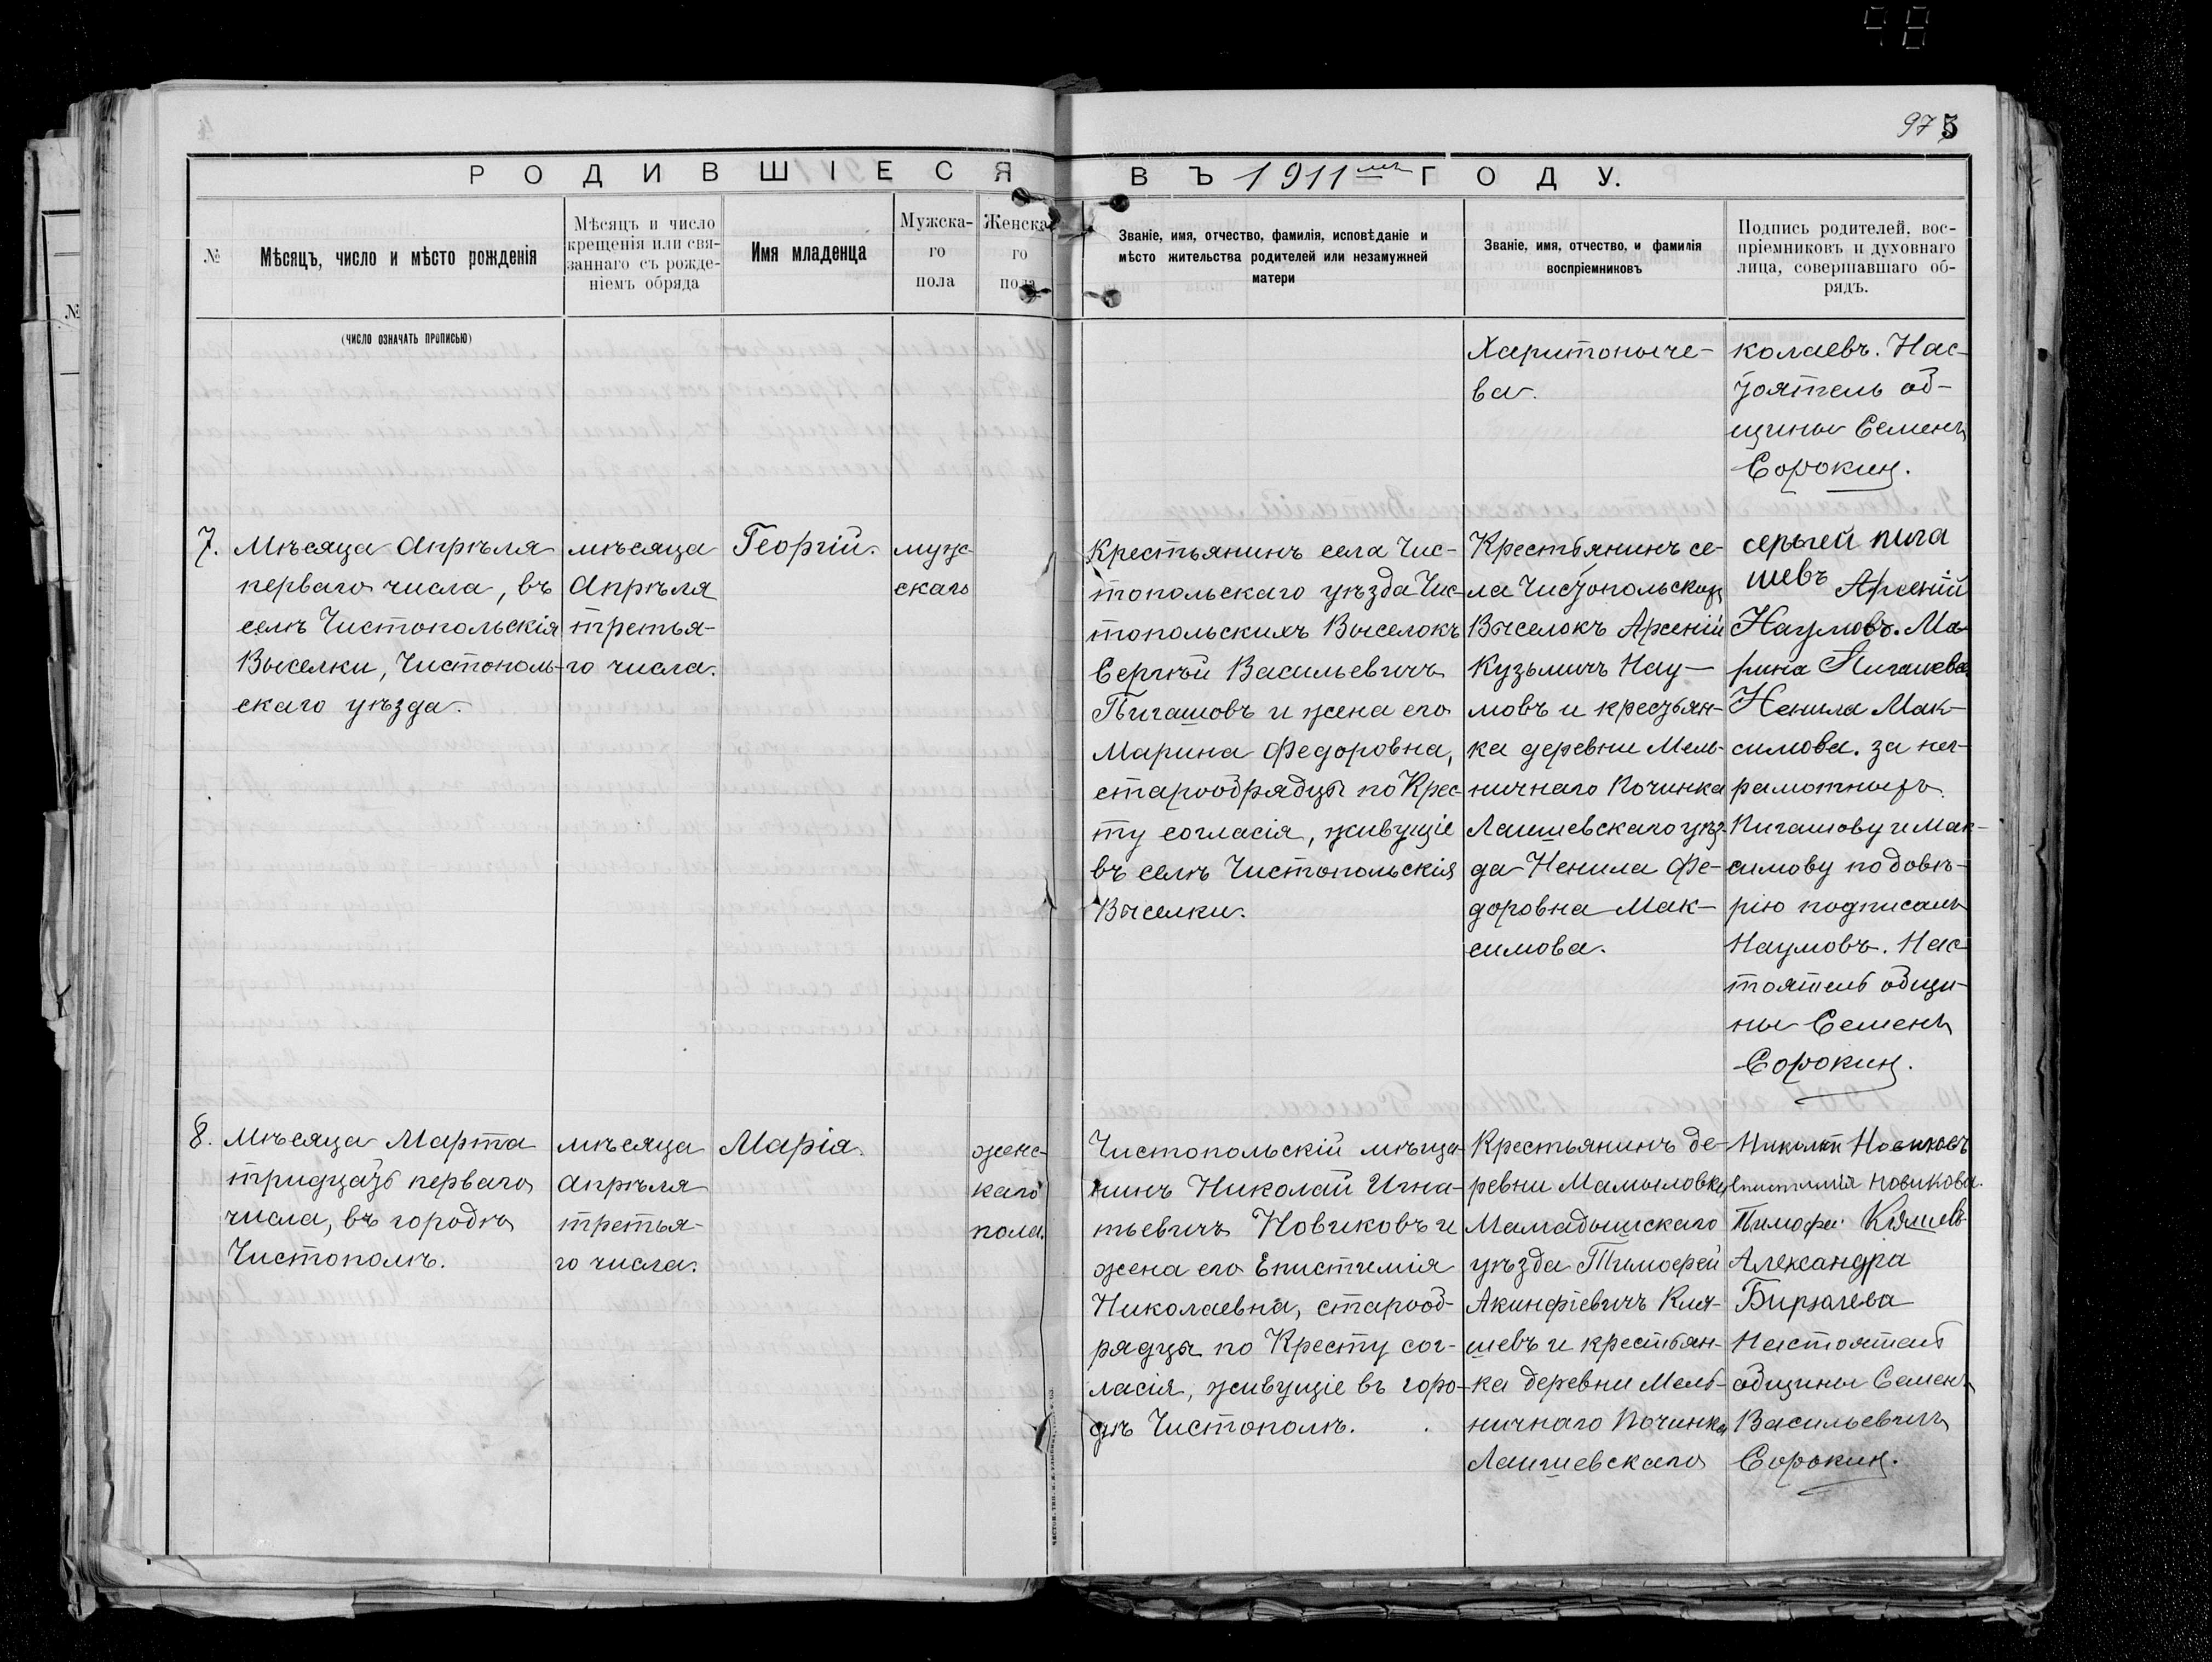 98
975
РОДИВШІЕСЯ ВЪ 1911мъ ГОДУ.
№
Мѣсяцъ, число и мѣсто рожденія
(ЧИСЛО ОЗНАЧАТЬ ПРОПИСЬЮ)
Мѣсяцъ и число
крещенія или свя-
заннаго съ рожде-
ніемъ обряда
Имя младенца
Мужска-
го
пола
Женска-
го
пола
Званіе, имя, отчество, фамилія, исповѣданіе и
мѣсто жительства родителей или незамужней
матери
Званіе, имя, отчество, и фамилія
воспріемниковъ
Подпись родителей, вос-
пріемниковъ и духовнаго
лица, совершавшаго об-
рядъ.
№
Харитоныче-
ва.
колаевъ. Нас-
тоятель об-
щины Семенъ
Сорокин.
7.
Мѣсяца Апрѣля
перваго числа, въ
селѣ Чистопольскія
Выселки, Чистополь-
скаго уѣзда.
мѣсяца
Апрѣля
третья-
го числа.
Георгій.
муж-
скаго
Крестьянинъ села Чис-
топольскаго уѣзда Чис-
топольскихъ Выселокъ
Сергѣй Васильевичъ
Пигашовъ и жена его
Марина Федоровна,
старообрядцы по Крес-
ту согласія, живущіе
въ селѣ Чистопольскія
Выселки.
Крестьянинъ се-
ла Чистопольскихъ
Выселокъ Арсеній
Кузьмичъ Нау-
мовъ и крестьян-
ка деревни Мель-
ничнаго Починка
Лаишевскаго уѣз-
да Ненила Фе-
доровна Мак-
симова.
сергей пига
шевъ Арсеній
Наумовъ. Ма-
рина Пигашева
Ненила Мак-
симова. за нег-
рамотныхъ
Пигашову и Мак-
симову по довѣ-
рію подписалъ
Наумовъ. Нас-
тоятель общи-
ны Семенъ
Сорокин.
8.
Мѣсяца Марта
тридцать перваго
числа, въ городѣ
Чистополѣ.
мѣсяца
Апрѣля
третья-
го числа.
Марія.
женс-
каго
пола.
Чистопольскій мѣща-
нинъ Николай Игна-
тьевичъ Новиковъ и
жена его Епистимія
Николаевна, старооб-
рядцы по Кресту сог-
ласія, живущіе въ горо-
дѣ Чистополѣ.
Крестьянинъ де-
ревни Мамыловки
Мамадышскаго
уѣзда Тимофей
Акинфіевичъ Кля-
шевъ и крестьян-
ка деревни Мель-
ничнаго Починка
Лаишевскаго
Николай Новиковъ
епистимія Новикова.
Тимофей Кляшевъ
Александра
Бирюлева
Настоятель
общины Семенъ
Васильевичъ
Сорокин.